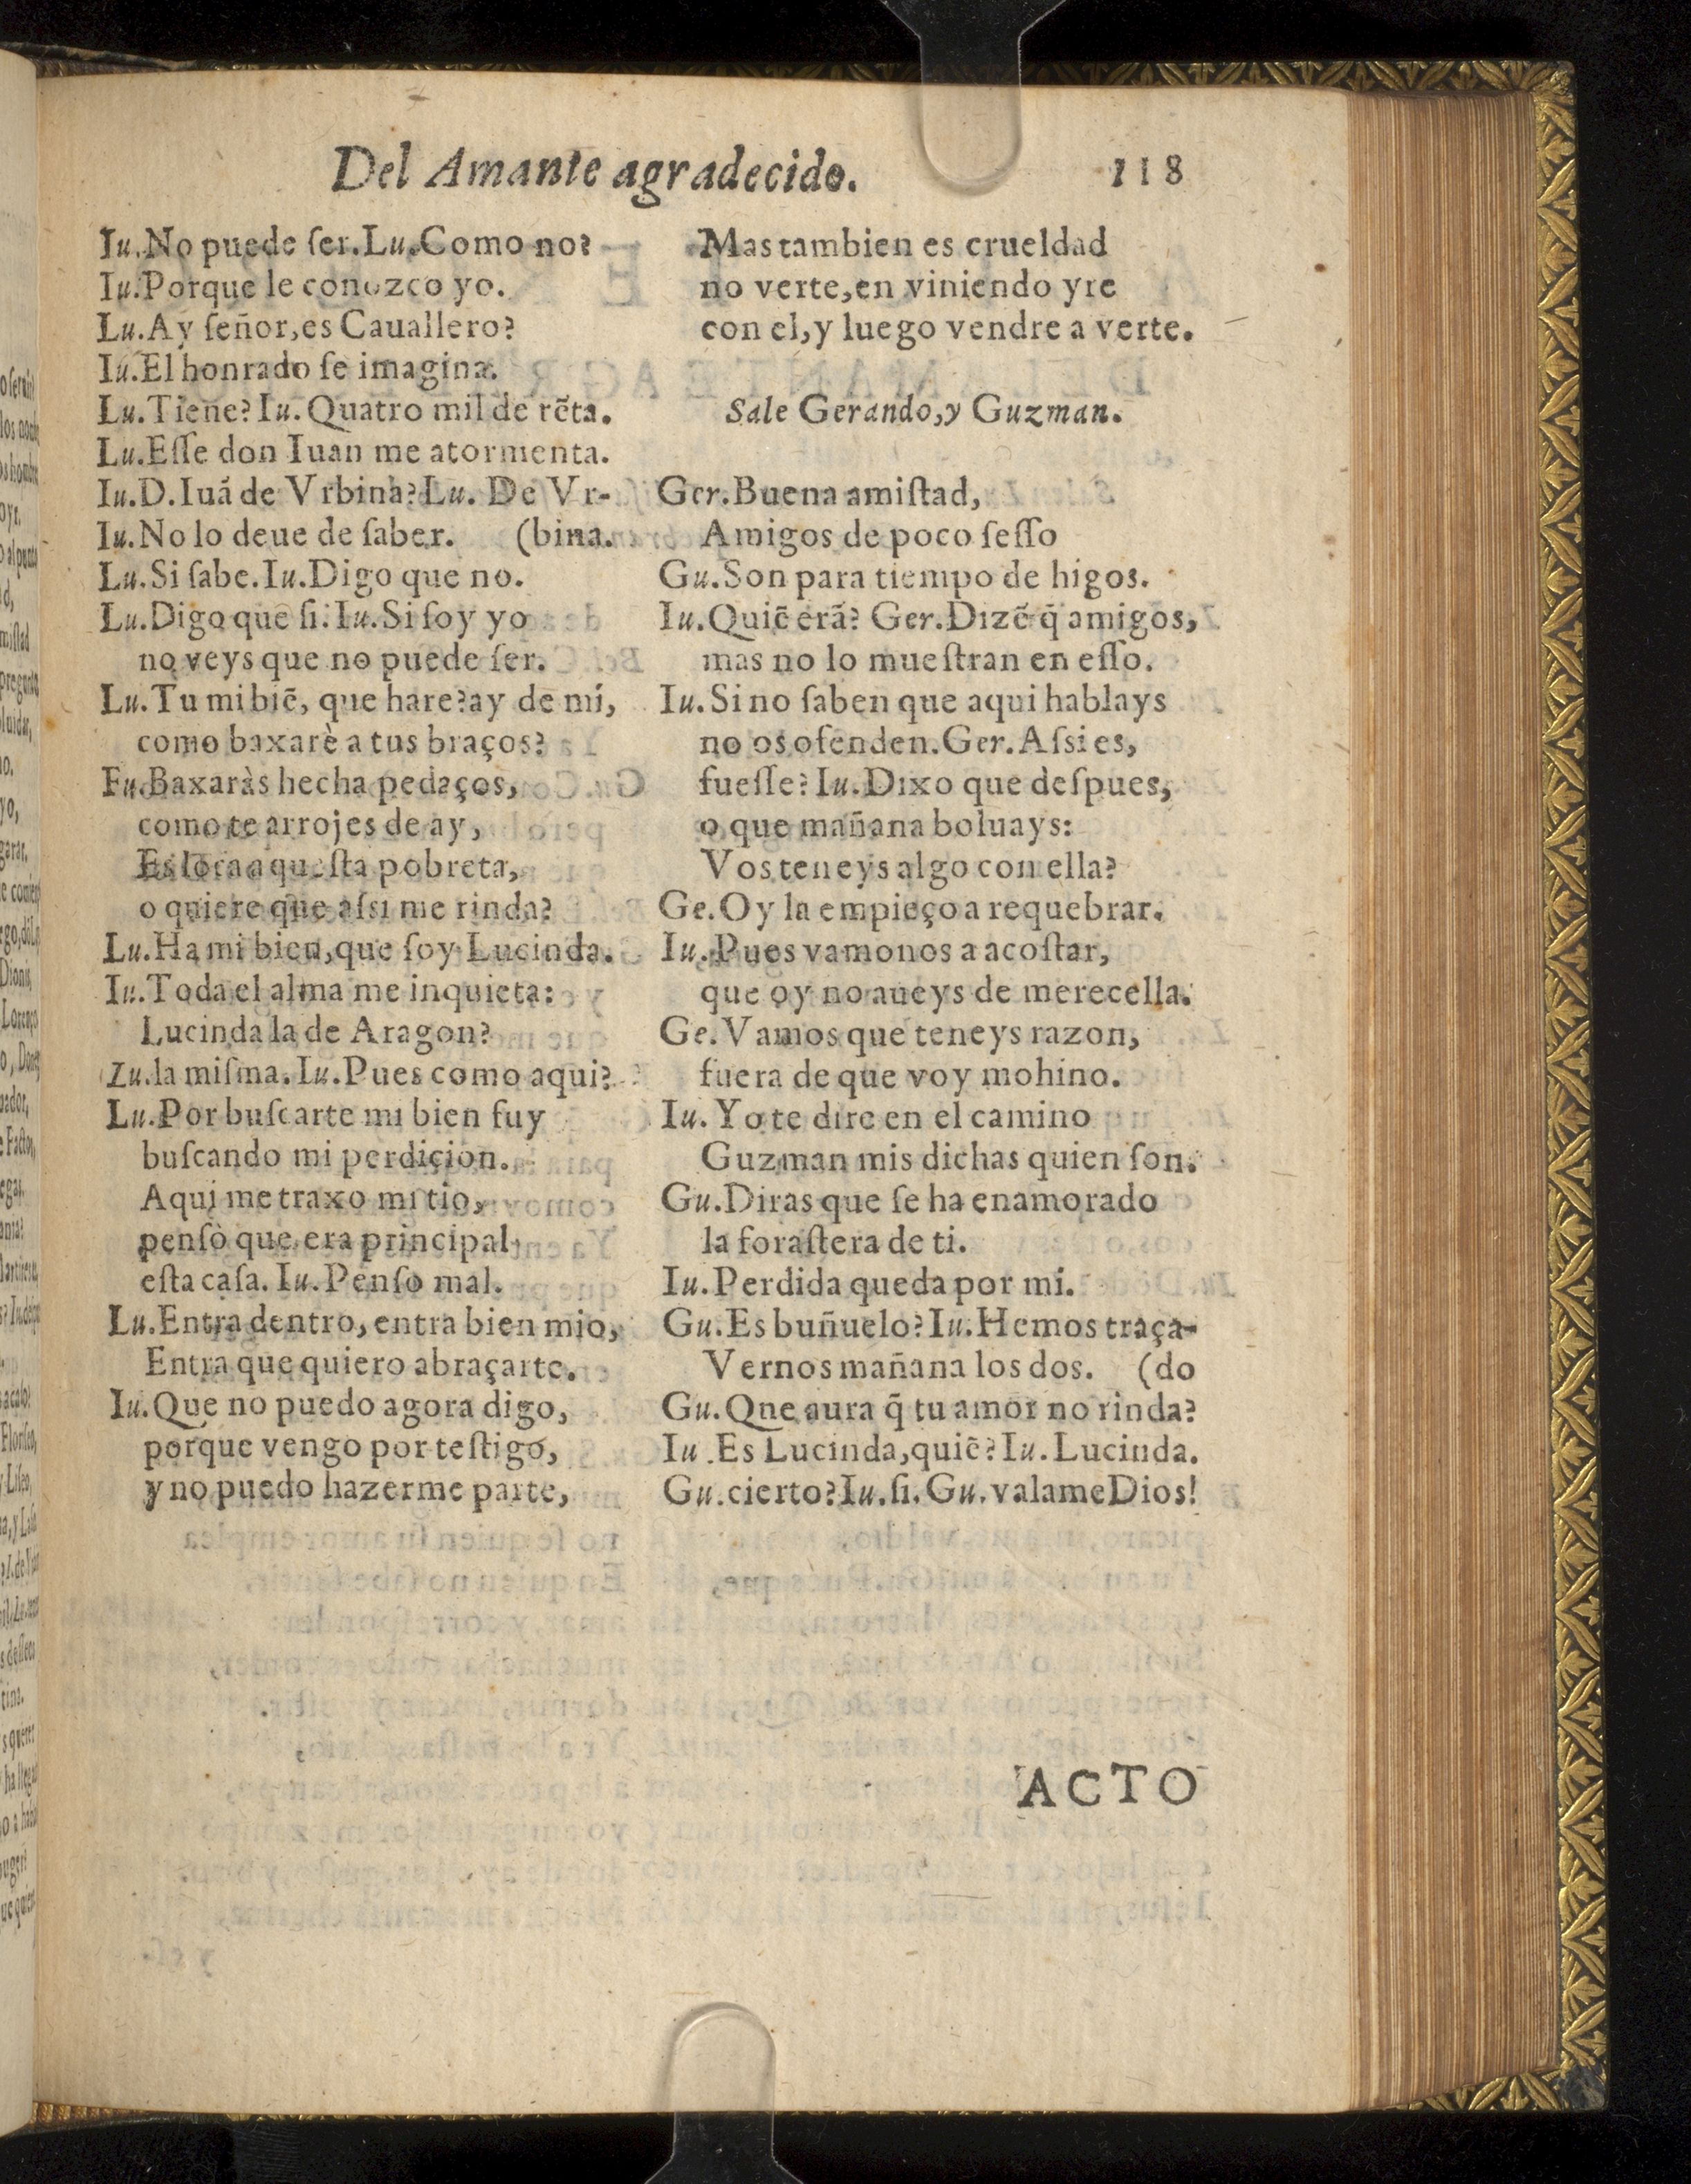 Del Amante agradecido. 118
Iu.No puede ser.Lu.Como no?
Iu.Porque le conozco yo.
Lu.Ay señor,es Cauallero?
Iu.El honrado se imagina.
Lu.Tiene?Iu.Quatro mil de rẽta.
Lu.Esse don Iuan me atormenta.
Iu.D.Iuã de Vrbina?Lu. De Vr-
Iu.No lo deue de saber. (bina.
Lu.Si sabe.Iu.Digo que no.
Lu.Digo que si.Iu.Si soy yo
no veys que no puede ser.
Lu.Tu mi biẽ, que hare?ay de mí,
como baxarè a tus braços?
Fu.Baxaràs hecha pedaços,
como te arrojes de ay,
Es loca aquesta pobreta,
o quiere que assi me rinda?
Lu.Ha mi bien,que soy Lucinda.
Iu.Toda el alma me inquieta:
Lucinda la de Aragon?
Lu.la misma.Iu.Pues como aqui?
Lu.Por buscarte mi bien fuy
buscando mi perdiçion.
Aqui me traxo mi tio,
pensò que era principal
esta casa. Iu.Penso mal.
Lu.Entra dentro, entra bien mio,
Entra que quiero abraçarte.
Iu.Que no puedo agora digo,
porque vengo por testigo,
y no puedo hazerme parte,
Mas tambien es crueldad
no verte,en viniendo yre
con el,y luego vendre a verte.
Sale Gerando,y Guzman.
Ger.Buena amistad,
Amigos de poco sesso
Gu.Son para tiempo de higos.
Iu.Quiẽ erã? Ger.Dizẽ q̃ amigos,
mas no lo muestran en esso.
Iu.Si no saben que aqui hablays
no os ofenden.Ger.Assi es,
fuesse?Iu.Dixo que despues,
o que mañana boluays:
Vos teneys algo con ella?
Ge.Oy la empieço a requebrar.
Iu.Pues vamonos a acostar,
que oy no aueys de merecella.
Ge.Vamos que teneys razon,
fuera de que voy mohino.
Iu.Yo te dire en el camino
Guzman mis dichas quien son.
Gu.Diras que se ha enamorado
la forastera de ti.
Iu.Perdida queda por mi.
Gu.Es buñuelo?Iu.Hemos traça-
Vernos mañana los dos. (do
Gu.Qne aura q̃ tu amor no rinda?
Iu.Es Lucinda,quiẽ?Iu.Lucinda.
Gu.cierto?Iu.si.Gu.valame Dios!
ACTO